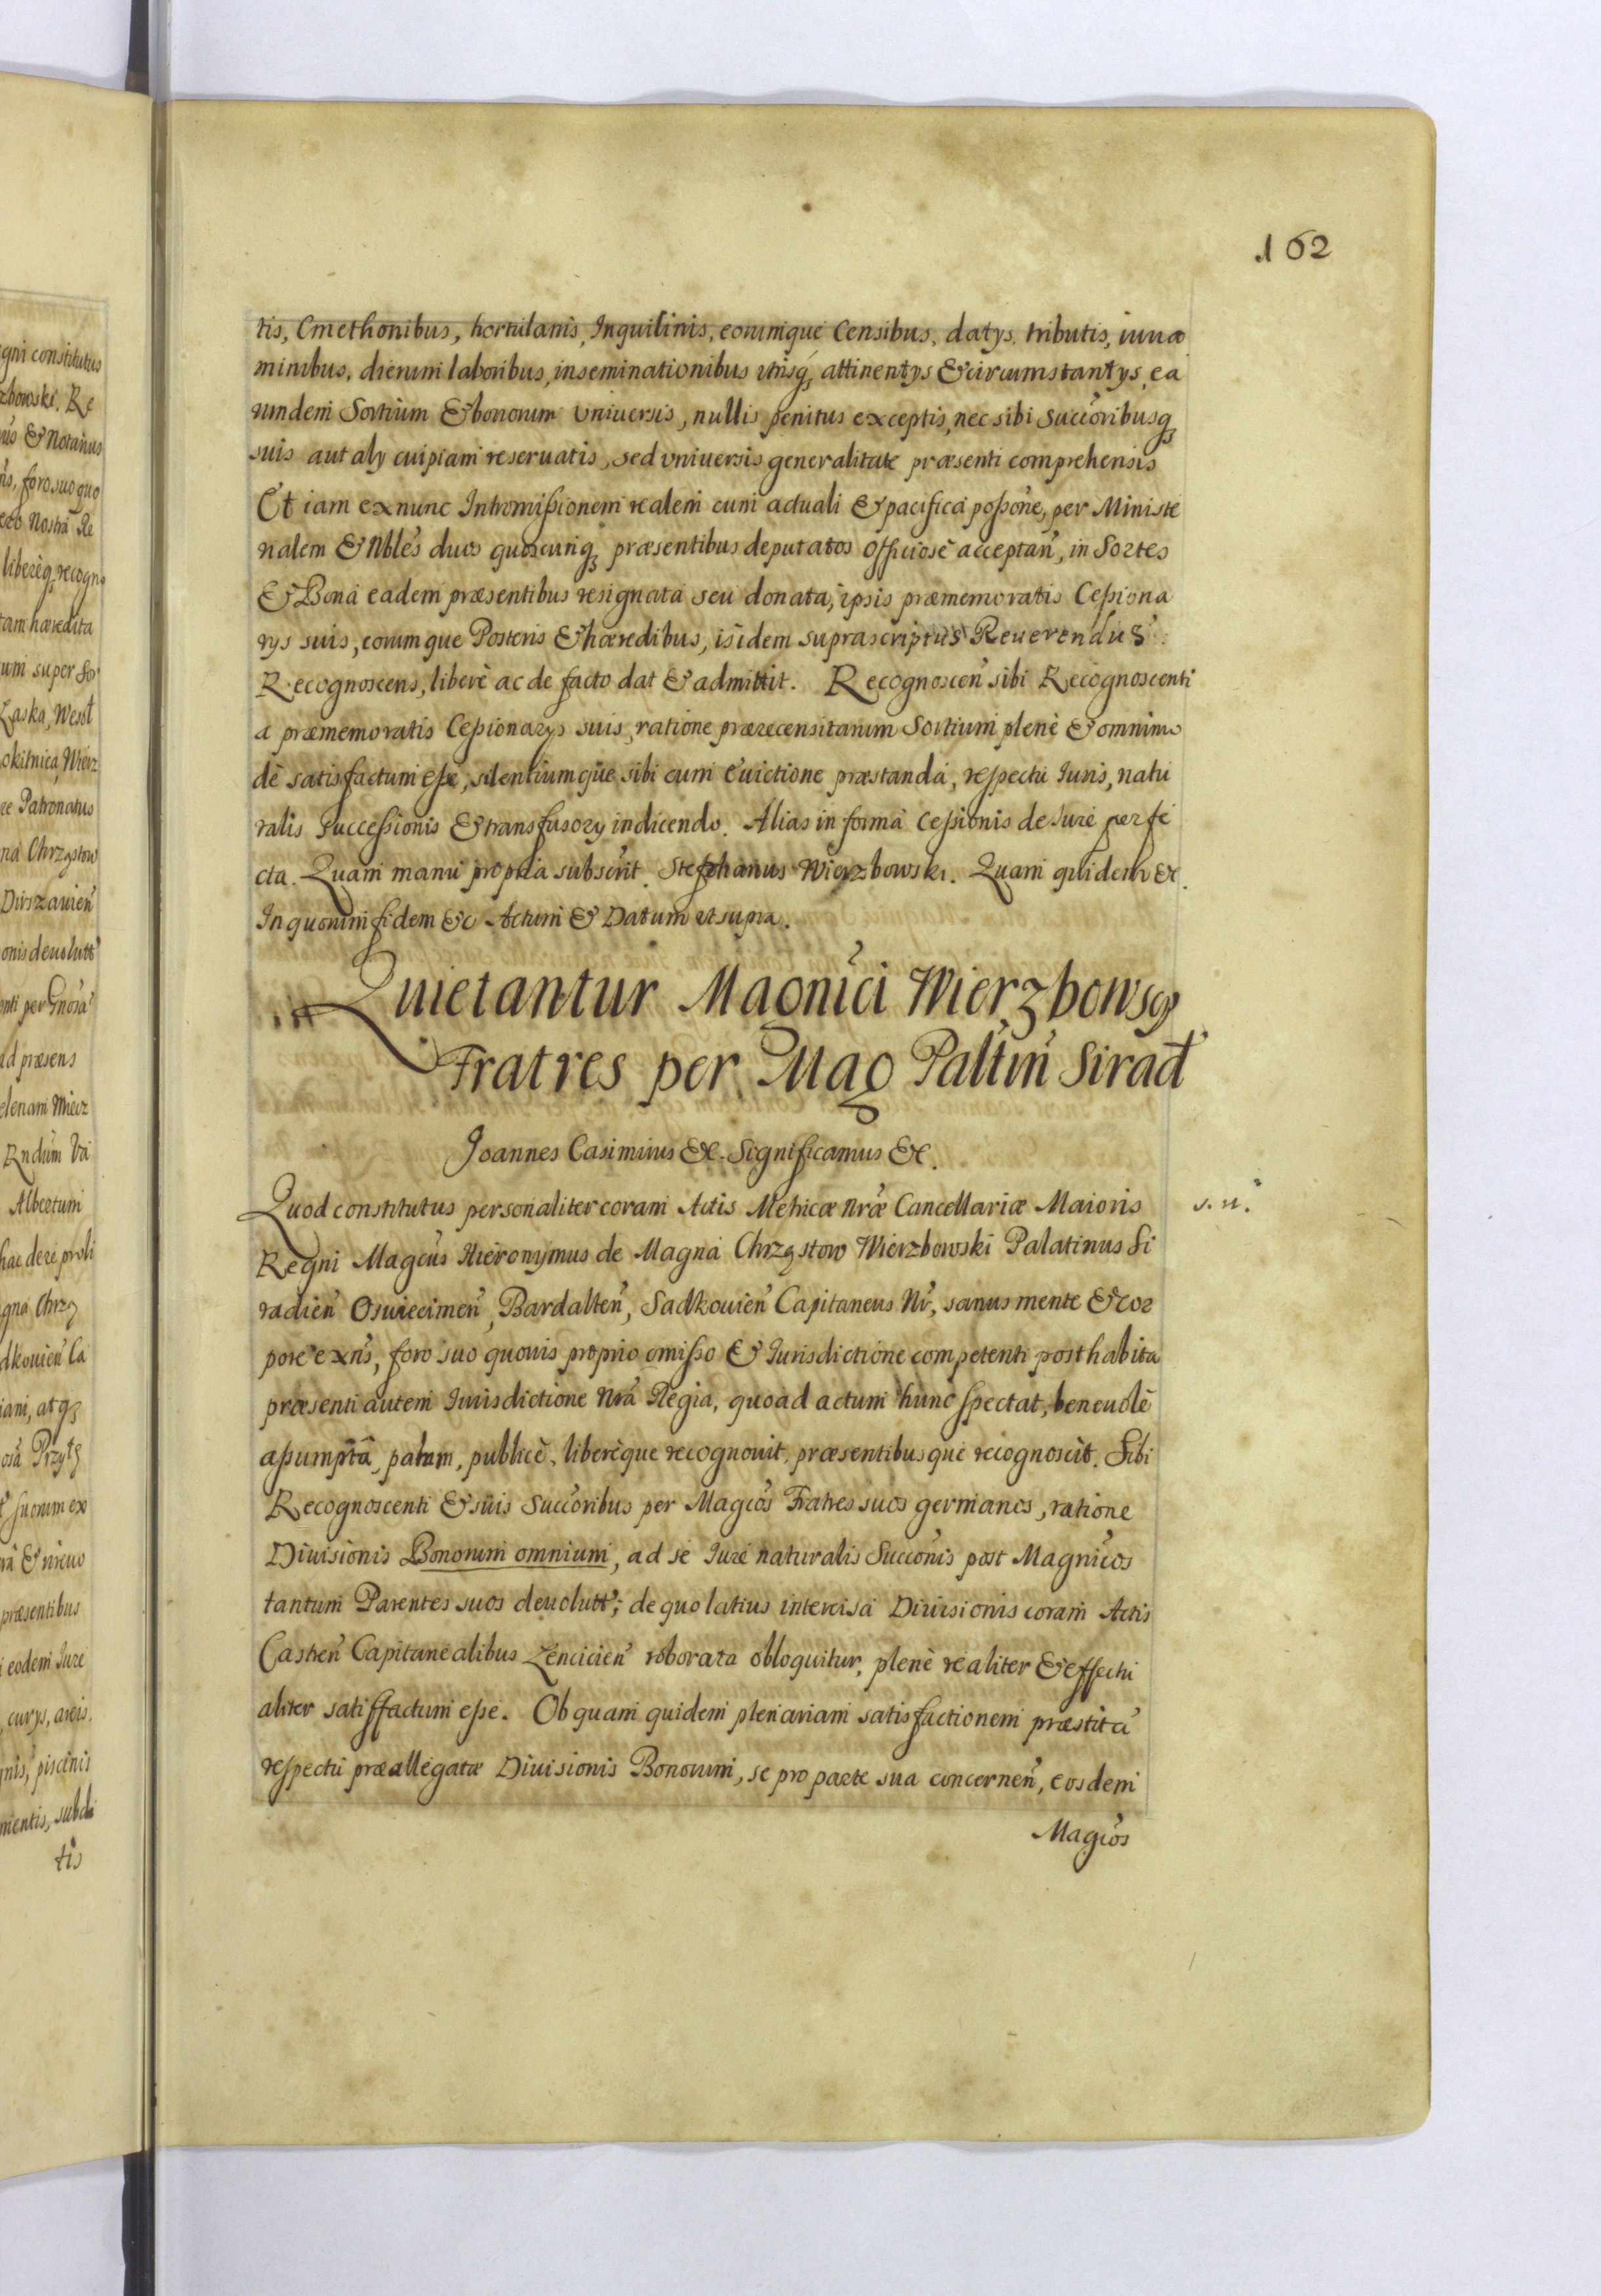 162
tis, Cmethonibus, hortulanis, Inquilinis, eorumque Censibus, datys, tributis, iuua
minibus, dierum laboribus, inseminationibus vtrisq, attinentys & circumstantys, ea
rundem Sortium & bonorum vniuersis, nullis penitus exceptis, nec sibi Succoribusq
suis aut aly cuipiam reseruatis, sed vniuersis generalitate præsenti comprehensis
Et iam ex nunc Intromissionem realem cum actuali & pacifica possone, per Ministe
rialem & Nbles duos quoscunq præsentibus deputatos officiose acceptan, in Sortes
& Bona eadem præsentibus resignata seu donata, ipsis præmemoratis Cessiona
rys suis, eorumque Posteris & hæredibus, isidem suprascriptus Reuerendus
Recognoscens, liberè ac de facto dat & admittit. Recognoscen sibi Recognoscenti
a præmemoratis Cessionarys suis, ratione prærecensitarum Sortium plenè & omnimo
dè satisfactum esse, silentiumque sibi cum Euictione præstanda, respectu Iuris, natu
ralis Successionis & transfusory indicendo. Alias in forma Cessionis de Iure perfe
cta. Quam manu propria subscrit. Stephanus Wierzbowski. Quam quidem &c.
In quorum fidem &c Actum & Datum ut supra.
Quietantur Magnici Wierzbowscy
Fratres per Mag Paltin Sirad
Joannes Casimirus &c. Significamus &c.
Quod constitutus personaliter coram Actis Metricæ Nræ Cancellariæ Maioris
s. n.
Regni Magcus Hieronymus de Magna Chrzęstow Wierzbowski Palatinus Si
radien Oswiecimen, Bardalten, Sadkouien Capitaneus Nr, sanus mente & cor
pore exns, foro suo quouis proprio omisso & Iurisdictione competenti posthabita
præsenti autem Iurisdictione Nra Regia, quoad actum hunc spectat, beneuole
assumpta, palam, publicè, liberèque recognouit, præsentibusque recognoscit. Sibi
Recognoscenti & suis Succoribus per Magcos Fratres suos germanos, ratione
Diuisionis Bonorum omnium, ad se Iure naturalis Succonis post Magnicos
tantum Parentes suos deuolutt; de quo latius intercisa Diuisionis coram Actis
Castren Capitanealibus Lencicien roborata obloquitur, plenè realiter & effectu
aliter satisfactum esse. Ob quam quidem plenariam satisfactionem præstita
respectu præallegatæ Diuisionis Bonorum, se pro parte sua concernen, eosdem
Magcos